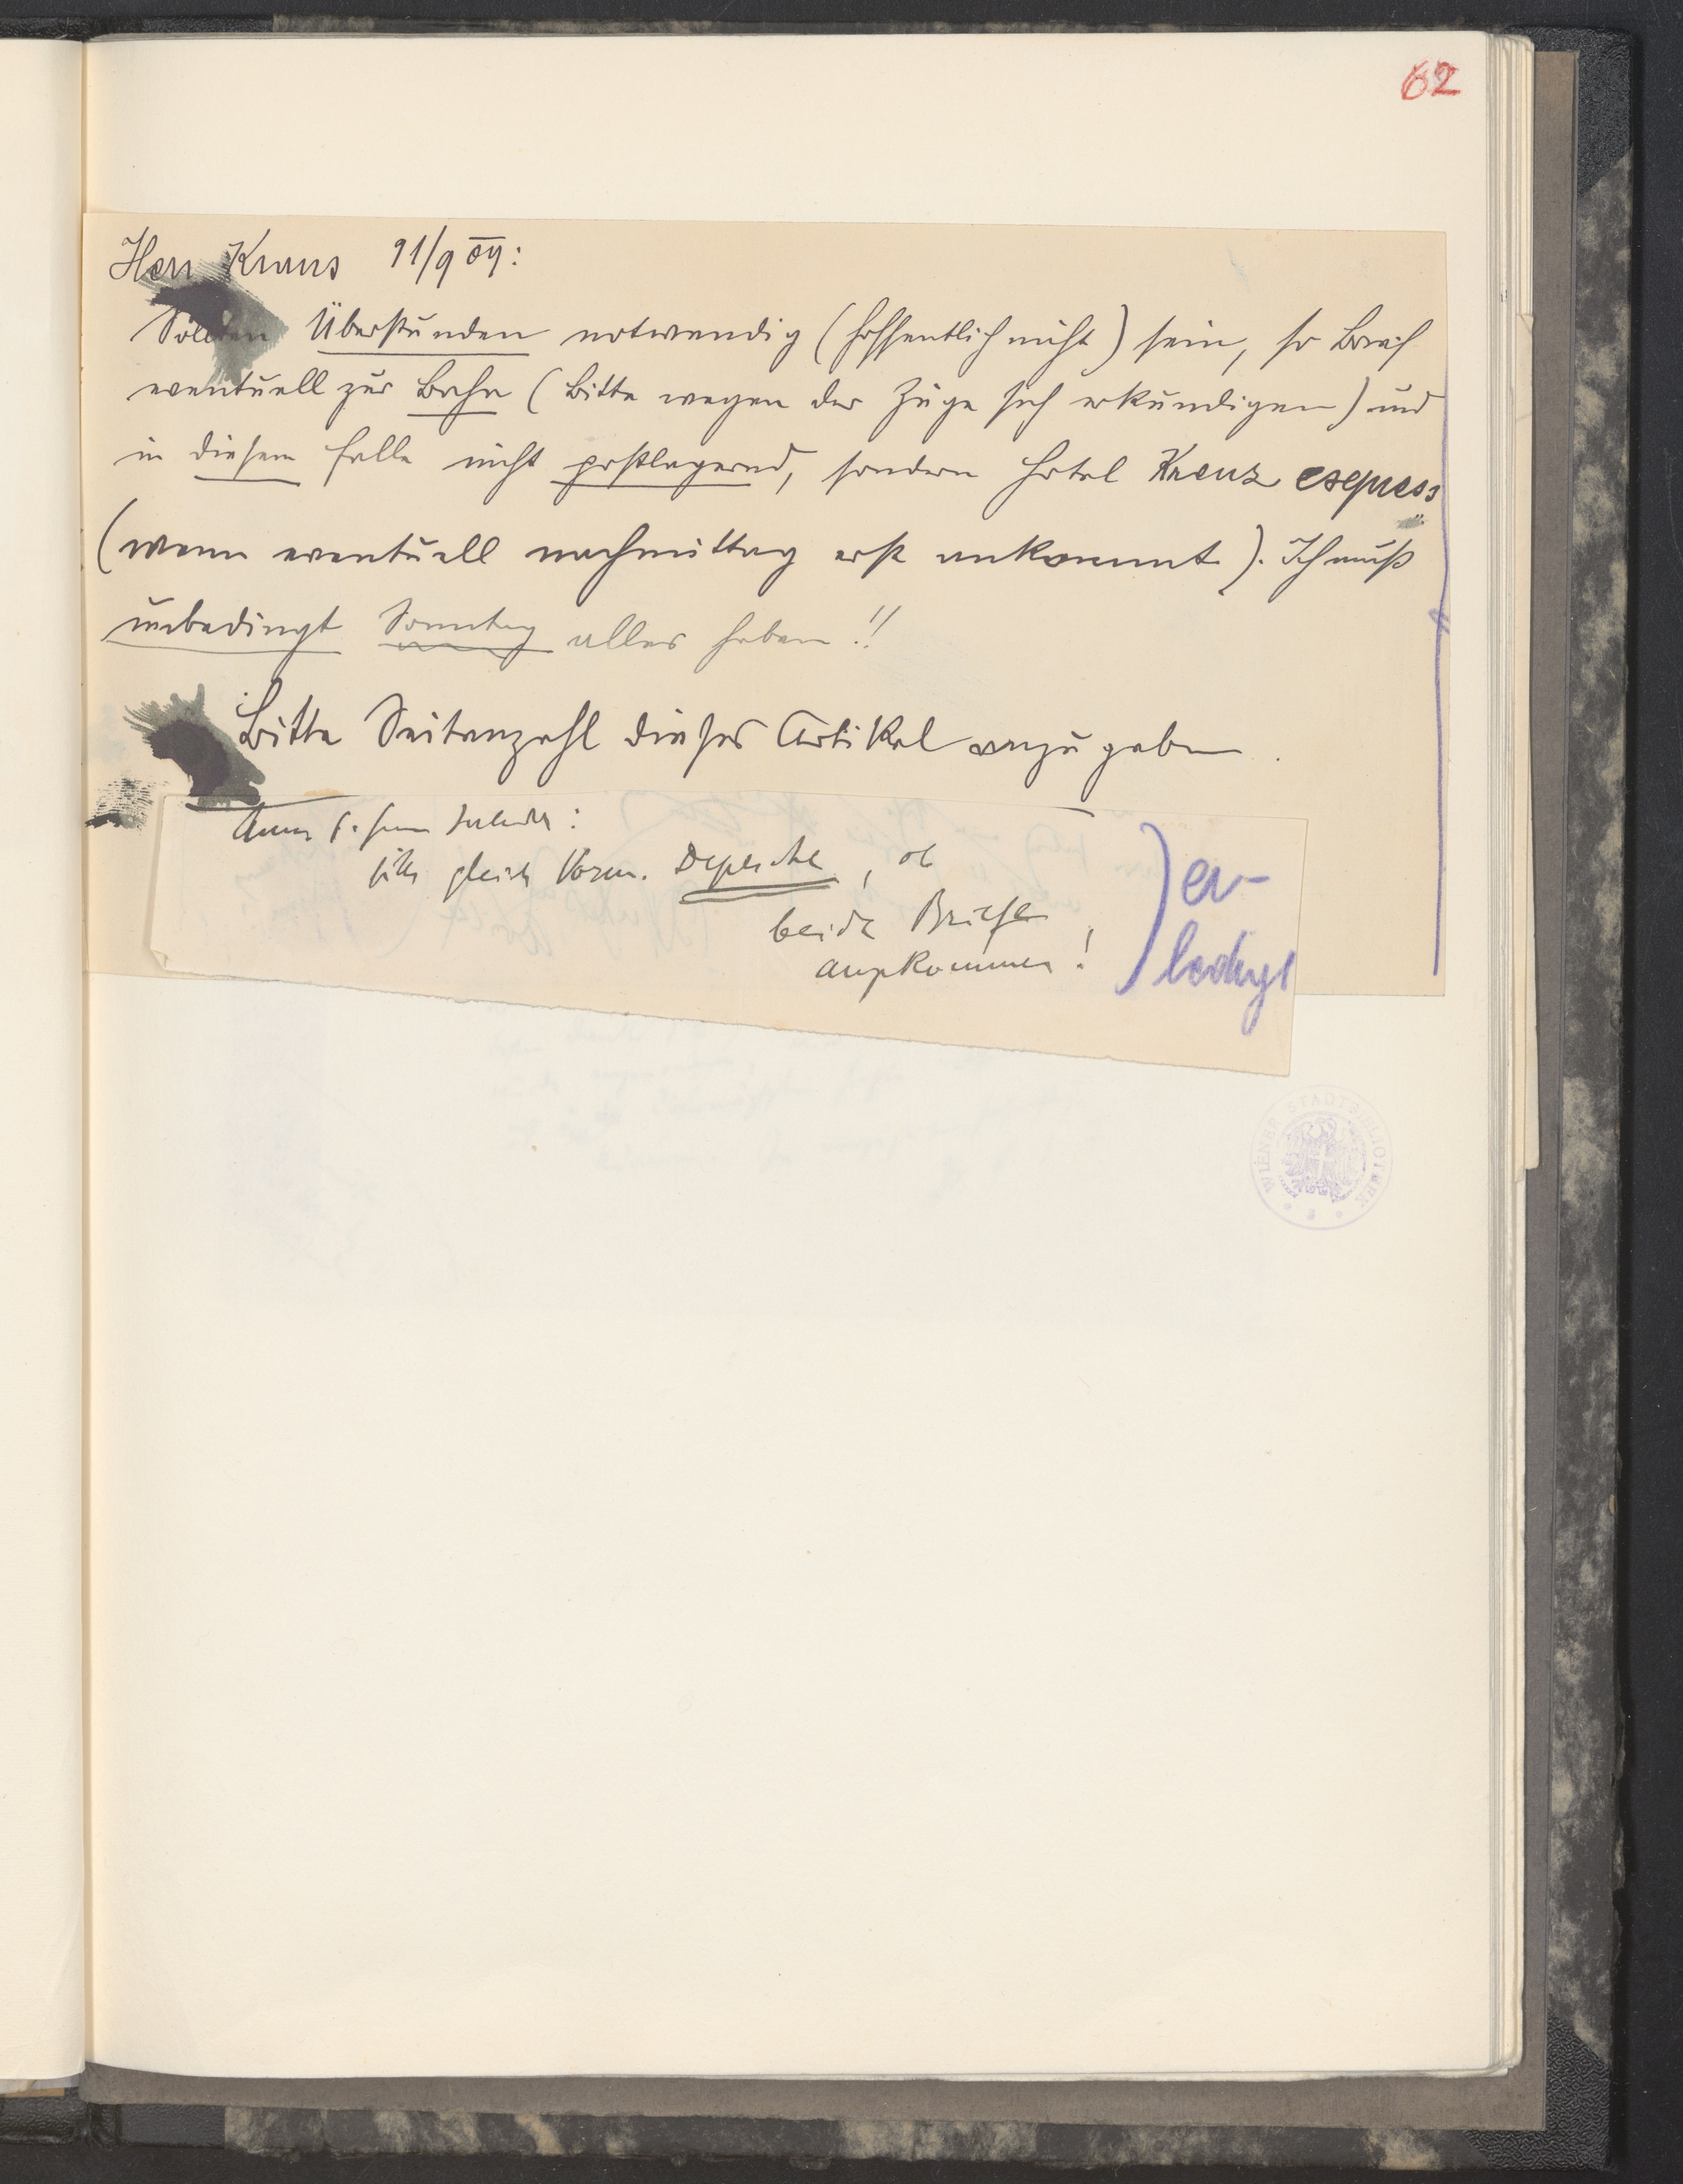 62
Herr Kraus 11/9 09:
Sollten Überstunden notwendig (hoffentlich nicht) sein, so Brief
eventuell zur Bahn (bitte wegen der Züge sich erkundigen) und
in diesem Falle nicht postlagernd, sondern Hotel Kreuz express
(wenn eventuell nachmittag erst ankommt). Ich muß
unbedingt Sonntag alles haben!!
Bitte Seitenzahl dieses Artikel anzugeben.
bitte gleich Vorm. Depesche, ob
beide Briefe
angekommen!
er-
ledigt
WIENER STADTBIBLIOTHEK